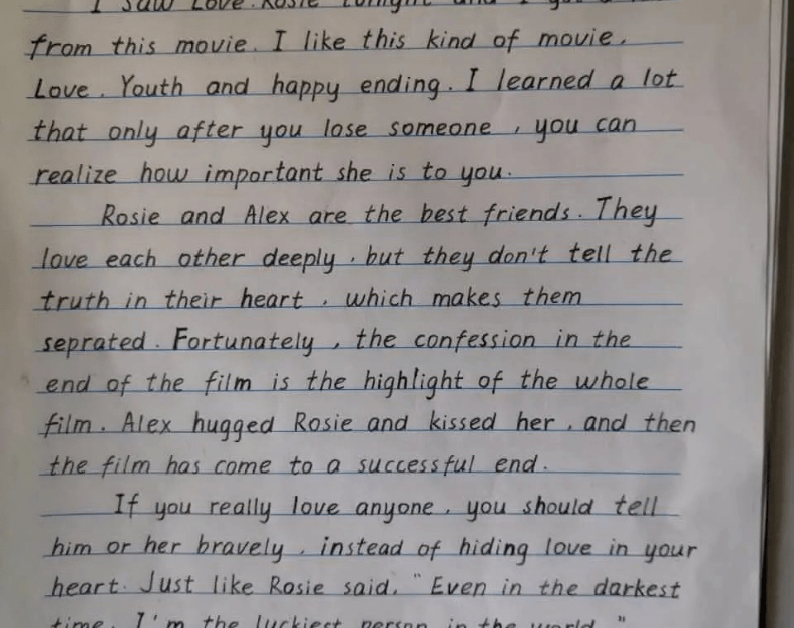 I saw Love. Rosie tonight and I
from this movie. I like this kind of movie.
Love. Youth and happy ending. I learned a lot
that only after you lose someone, you can
realize how important she is to you.
Rosie and Alex are the best friends. They
love each other deeply, but they don't tell the
truth in their heart, which makes them
seprated. Fortunately, the confession in the
end of the film is the highlight of the whole
film. Alex hugged Rosie and kissed her, and then
the film has come to a successful end.
If you really love anyone, you should tell
him or her bravely, instead of hiding love in your
heart. Just like Rosie said, "Even in the darkest
time, I'm the luckiest person in the world."